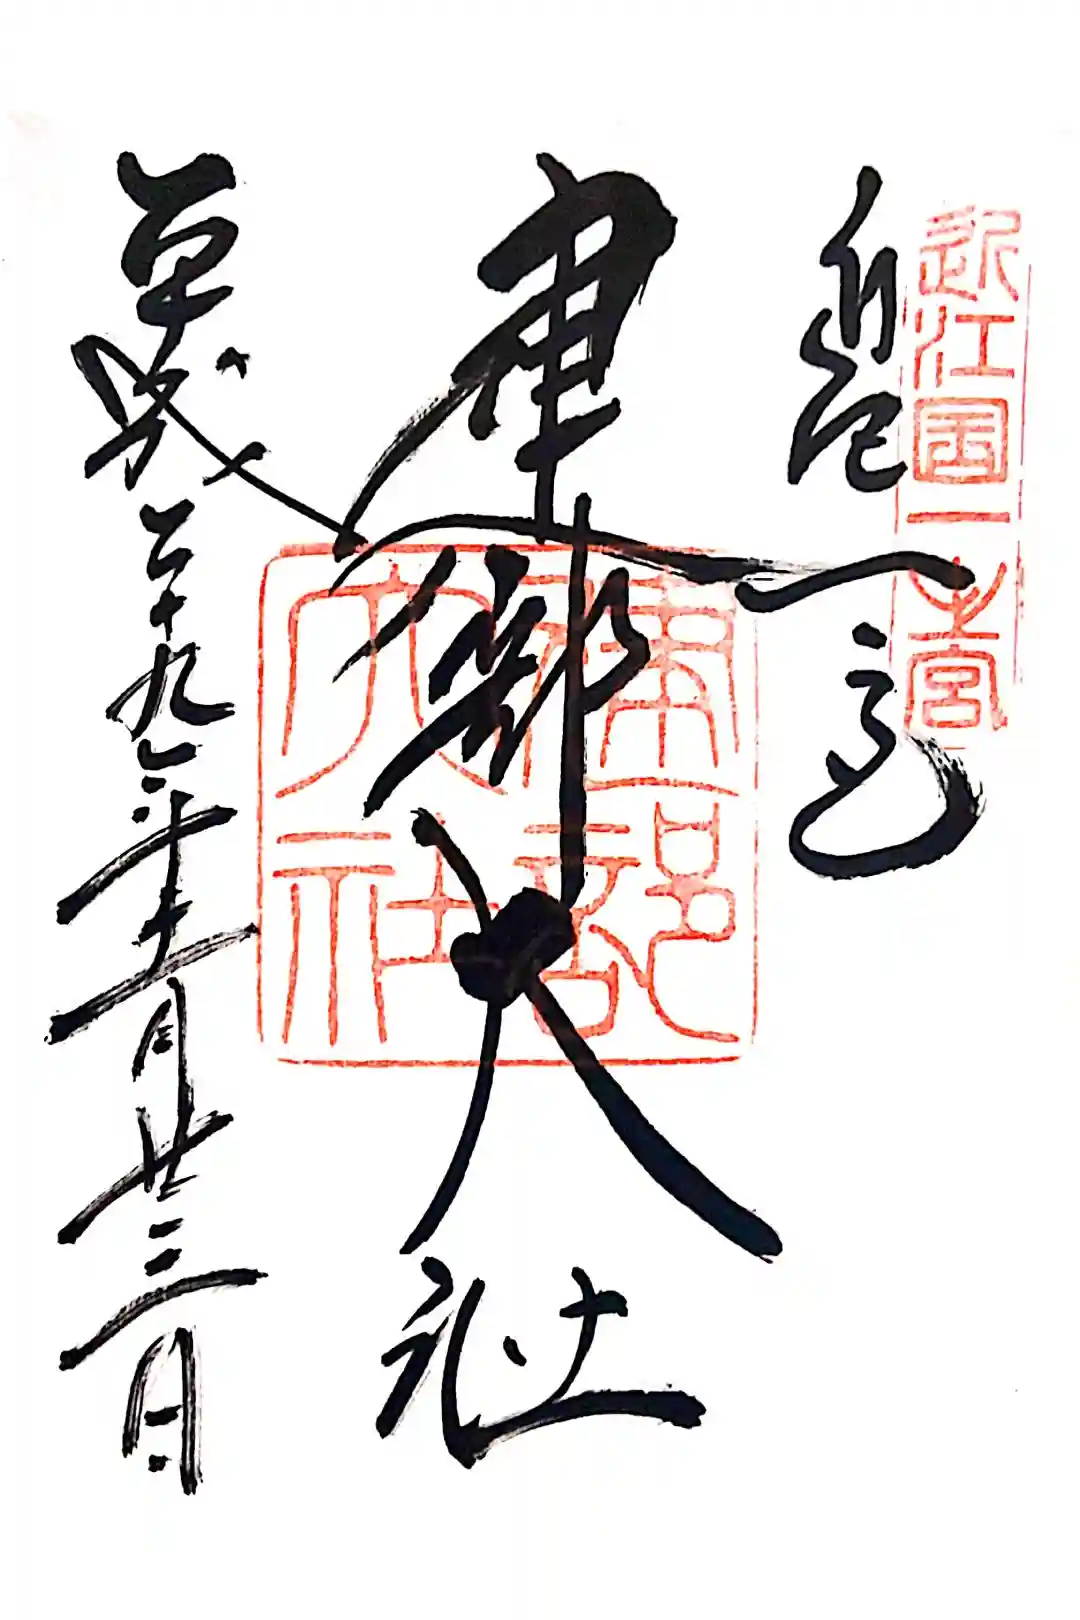 近江国一之宮
近江一宮
建部大社
建部大社
平成二十九年十一月廿三日